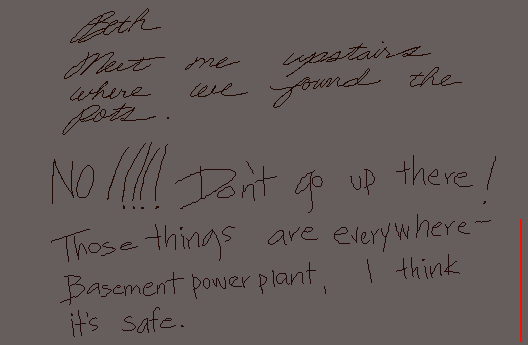 Beth
Meet me upstairs
where we found the
pots.
NO!!!!! Don't go up there!
Those things are everywhere-
Basement power plant, I think
it's safe.